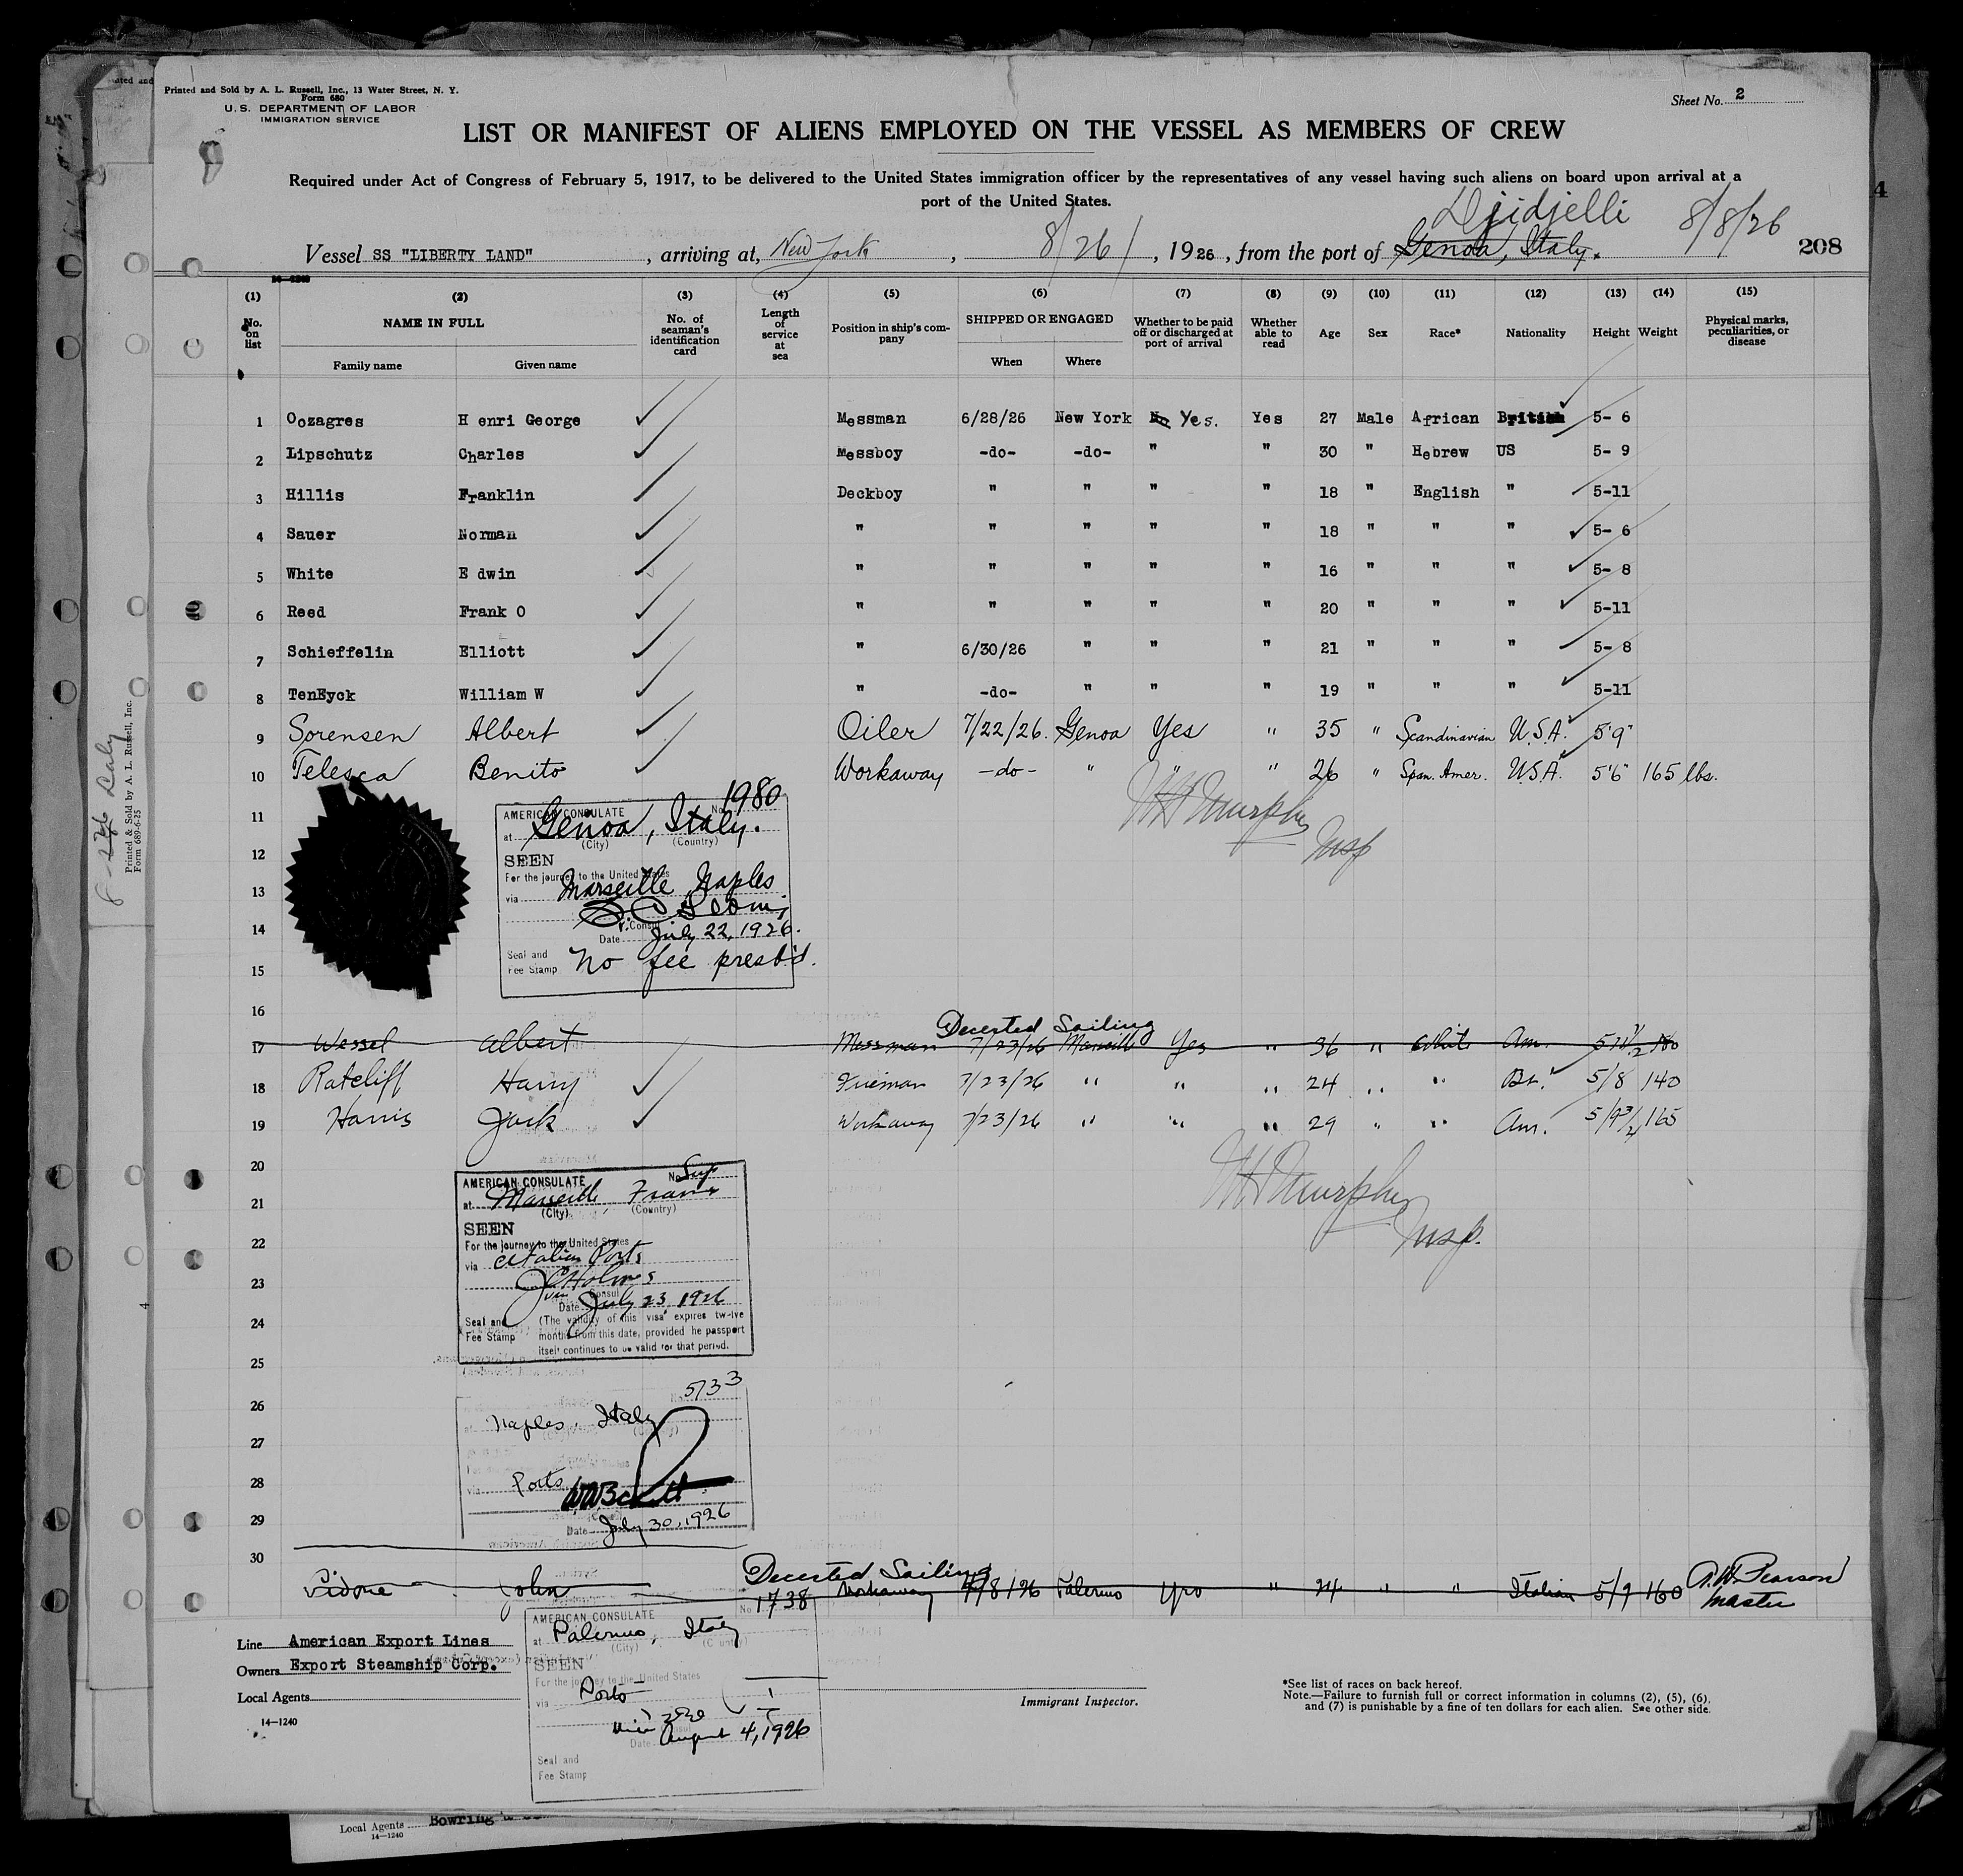 Printed and Sold by A. L. Russell, Inc., 13 Water Street, N. Y.
Form 680
U. S. DEPARTMENT OF LABOR
IMMIGRATION SERVICE
Sheet No. 2
LIST OR MANIFEST OF ALIENS EMPLOYED ON THE VESSEL AS MEMBERS OF CREW
Required under Act of Congress of February 5, 1917, to be delivered to the United States immigration officer by the representatives of any vessel having such aliens on board upon arrival at a
port of the United States.
Djidjelli 8/8/26
Vessel SS "LIBERTY LAND", arriving at, New York, 8/26/, 1926, from the port of Genoa, Italy. 208
(1) (2) (3) (4) (5) (6) (7) (8) (9) (10) (11) (12) (13) (14) (15)
No. on list NAME IN FULL Family name Given name No. of seaman's identification card Length of service at sea Position in ship's company SHIPPED OR ENGAGED When Where Whether to be paid off or discharged at port of arrival Whether able to read Age Sex Race* Nationality Height Weight Physical marks, peculiarities, or disease
1 Oozagres H enri George Messman 6/28/26 New York No Yes. Yes 27 Male African British 5- 6
2 Lipschutz Charles Messboy -do- -do- " " 30 " Hebrew US 5- 9
3 Hillis Franklin Deckboy " " " " 18 " English " 5-11
4 Sauer Norman " " " " " 18 " " " 5- 6
5 White E dwin " " " " " 16 " " " 5- 8
6 Reed Frank O " " " " " 20 " " " 5-11
7 Schieffelin Elliott " 6/30/26 " " " 21 " " " 5- 8
8 TenEyck William W " -do- " " " 19 " " " 5-11
9 Sorensen Albert Oiler 7/22/26. Genoa Yes " 35 " Scandinavian U.S.A. 5'9"
10 Telesca Benito Workaway -do- " " " 26 " Span. Amer. U.S.A. 5'6" 165 lbs.
11
12
13
14
15
16
AMERICAN CONSULATE No. 1980
at Genoa, Italy.
(City) (Country)
SEEN
For the journey to the United States
via Marseille Naples
V. Consul
Date July 22, 1926.
Seal and
Fee Stamp No fee presb'd.
WH Murphy
Insp
Deserted Sailing
17 Wessel Albert Messman 7/23/26 Marseille Yes " 36 " White Am. 5 11 1/2 180
18 Ratcliff Harry Fireman 7/23/26 " " " 24 " " Br. 5/8 140
19 Harris Jack Workaway 7/23/26 " " " 29 " " Am. 5/9 3/4 165
20
21
22
23
24
25
26
27
28
29
30
WH Murphy
Insp.
AMERICAN CONSULATE No. Sup
at Marseille, France
(City) (Country)
SEEN
For the journey to the United States
via Italian Ports
Consul
Date July 23, 1926
Seal and
Fee Stamp
(The validity of this visa expires twelve
months from this date, provided he passport
itself continues to be valid for that period.
5733
Naples, Italy
via Ports
Date July 30, 1926
Deserted Sailing
John 1738 Workaway 7/8/26 Palermo Yes " 24 " " Italian 5/7 160 A.W. Pearson
Master
AMERICAN CONSULATE No
at Palermo, Italy
(City) (Country)
SEEN
For the journey to the United States
via Ports
Consul
Date August 4, 1926
Seal and
Fee Stamp
Line American Export Lines
Owners Export Steamship Corp.
Local Agents
14—1240
Immigrant Inspector.
*See list of races on back hereof.
Note.—Failure to furnish full or correct information in columns (2), (5), (6),
and (7) is punishable by a fine of ten dollars for each alien. See other side.
Printed & Sold by A. L. Russell, Inc.
Form 689-6-25
4
4
Local Agents
14—1240